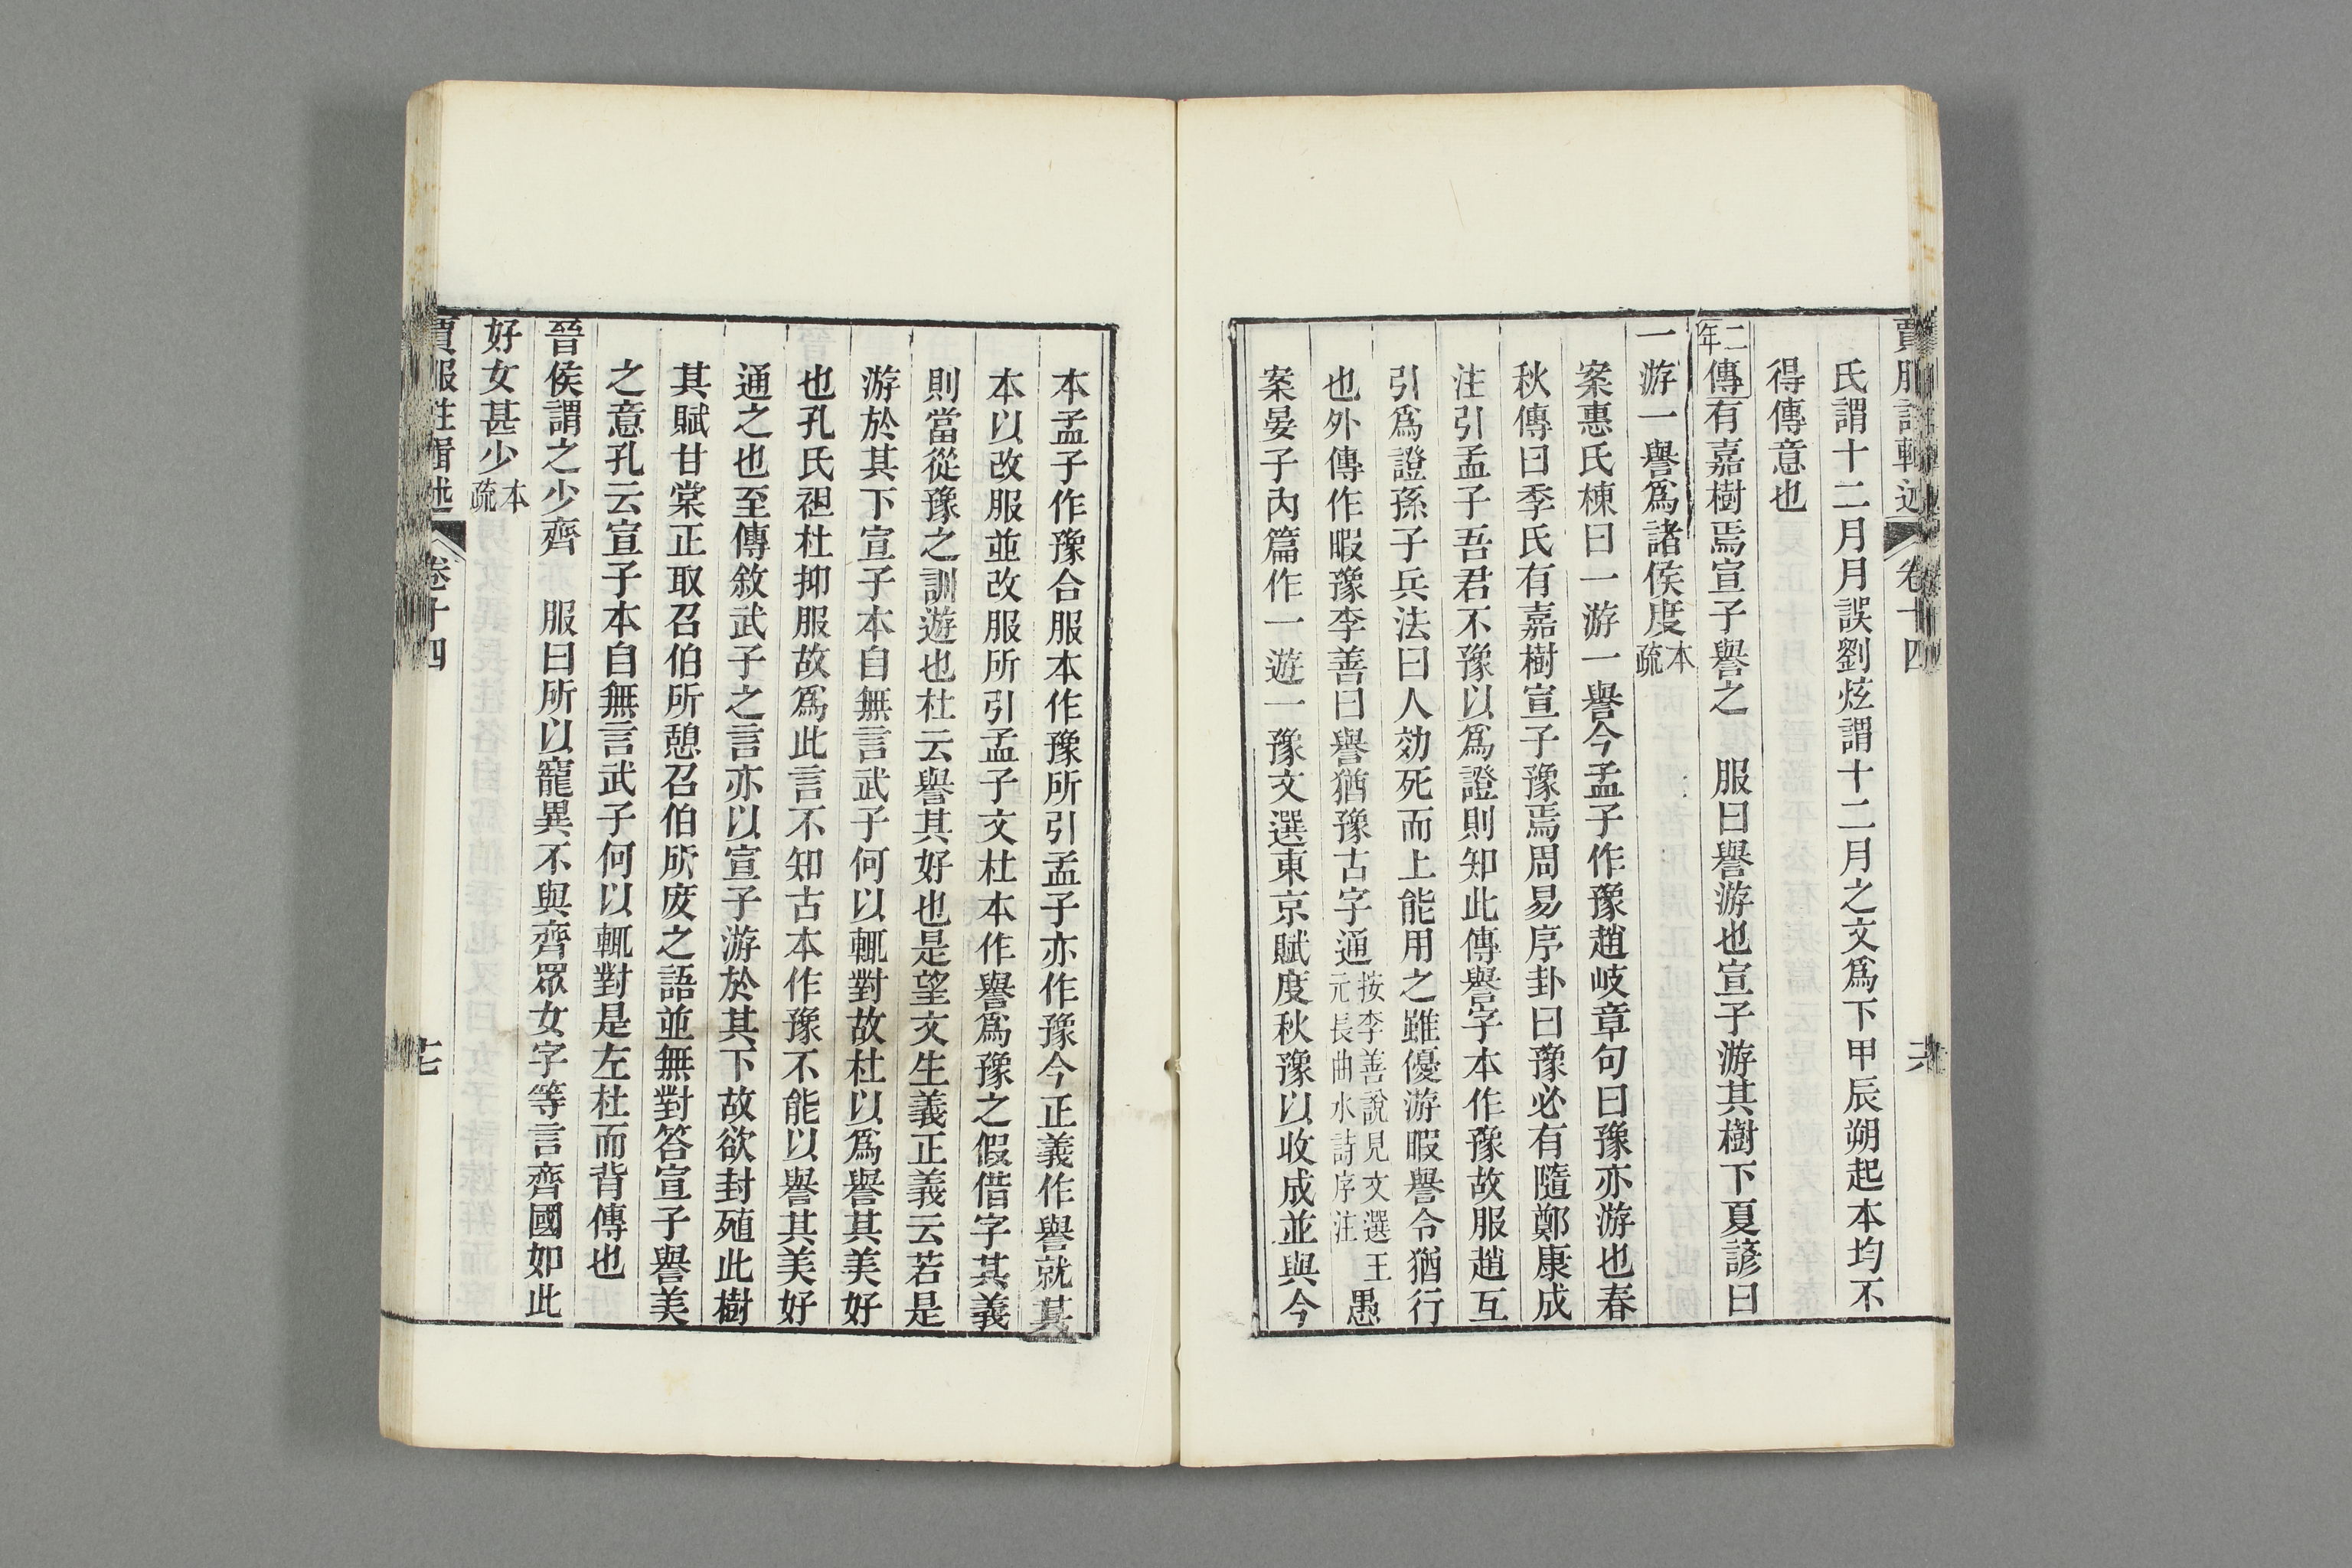 賈服註輯述 卷十四
氏謂十二月月誤劉炫謂十二月之文爲下甲辰朔起本均不
得傳意也
二年傳有嘉樹焉宣子譽之 服曰譽游也宣子游其樹下夏諺曰
一游一譽爲諸侯度本疏
案惠氏棟曰一游一譽今孟子作豫趙岐章句曰豫亦游也春
秋傳曰季氏有嘉樹宣子豫焉周易序卦曰豫必有隨鄭康成
注引孟子吾君不豫以爲證則知此傳譽字本作豫故服趙互
引爲證孫子兵法曰人効死而上能用之雖優游暇譽令猶行
也外傳作暇豫李善曰譽猶豫古字通按李善說見文選王元長曲水詩序注愚
案晏子內篇作一遊一豫文選東京賦度秋豫以收成並與今
本孟子作豫合服本作豫所引孟子亦作豫今正義作譽就其
本以改服並改服所引孟子文杜本作譽爲豫之假借字其義
則當從豫之訓遊也杜云譽其好也是望文生義正義云若是
游於其下宣子本自無言武子何以輒對故杜以爲譽其美好
也孔氏袒杜抑服故爲此言不知古本作豫不能以譽其美好
通之也至傳敘武子之言亦以宣子游於其下故欲封殖此樹
其賦甘棠正取召伯所憩召伯所廀之語並無對答宣子譽美
之意孔云宣子本自無言武子何以輒對是左杜而背傳也
晉侯謂之少齊 服曰所以寵異不與齊眾女字等言齊國如此
好女甚少本疏
賈服註輯述 卷十四